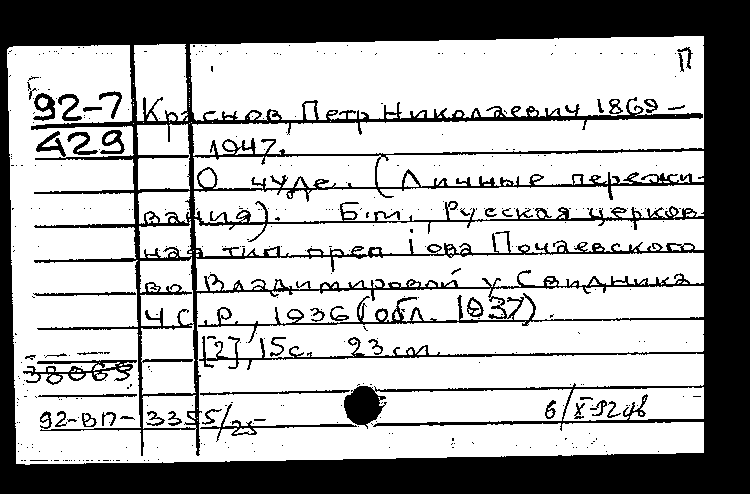 П
92-7 Краснов, Петр Николаевич, 1869 –
429 1947.
О чуде. (Личные пережи-
вания). Б.т., Русская церков-
ная тип. преп. Iова Почаевского
во Владимировой у Свидника
Ч.С.Р., 1936 (обл. 1937).
[2], 15 с. 23 см.
38069
92-ВП- 3355/25 6/X-92